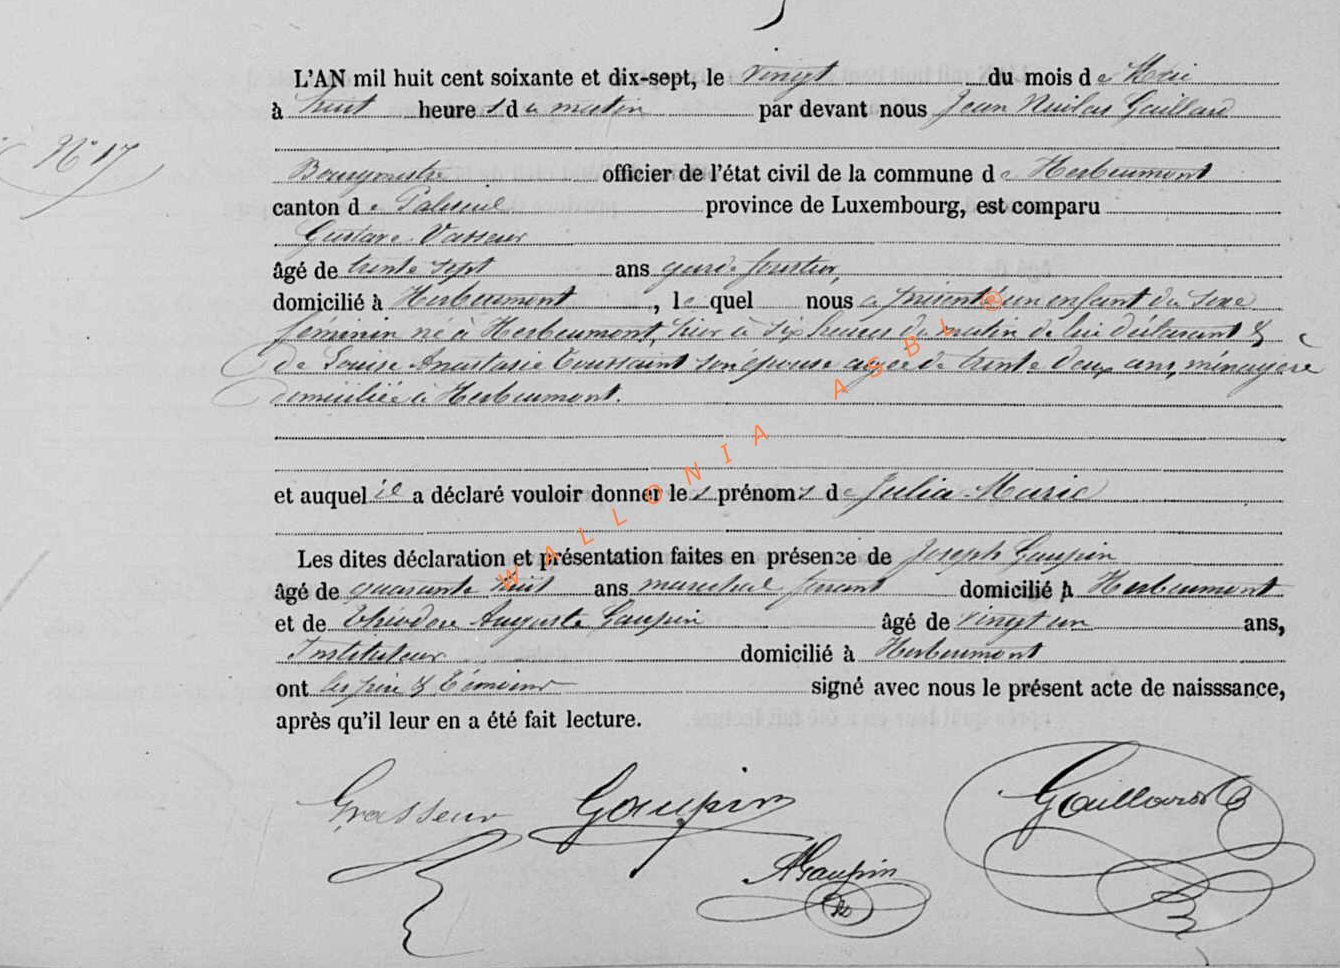 L'AN mil huit cent soixante et dix-sept, le vingt du mois de Mai
à huit heures du matin par devant nous Jean Nicolas Gaillard
N° 17
Bourgmestre officier de l'état civil de la commune de Herbeumont
canton de Paliseul province de Luxembourg, est comparu
Gustave Vasseur
âgé de trente sept ans garde forestier,
domicilié à Herbeumont, lequel nous a présenté un enfant du sexe
féminin né à Herbeumont, hier à six heures du matin de lui déclarant &
de Louise Anastasie Toussaint son épouse agée de trente deux ans, ménagère
domiciliée à Herbeumont.
et auquel il a déclaré vouloir donner les prénoms de Julia Marie
Les dites déclaration et présentation faites en présence de Joseph Gaupin
âgé de quarante huit ans maréchal ferrant domicilié à Herbeumont
et de Théodore Auguste Gaupin âgé de vingt un ans,
Instituteur domicilié à Herbeumont
ont les père & témoins signé avec nous le présent acte de naisssance,
après qu'il leur en a été fait lecture.
Gaupin Gaillard
AGaupin
WALLONIA ASBL ®